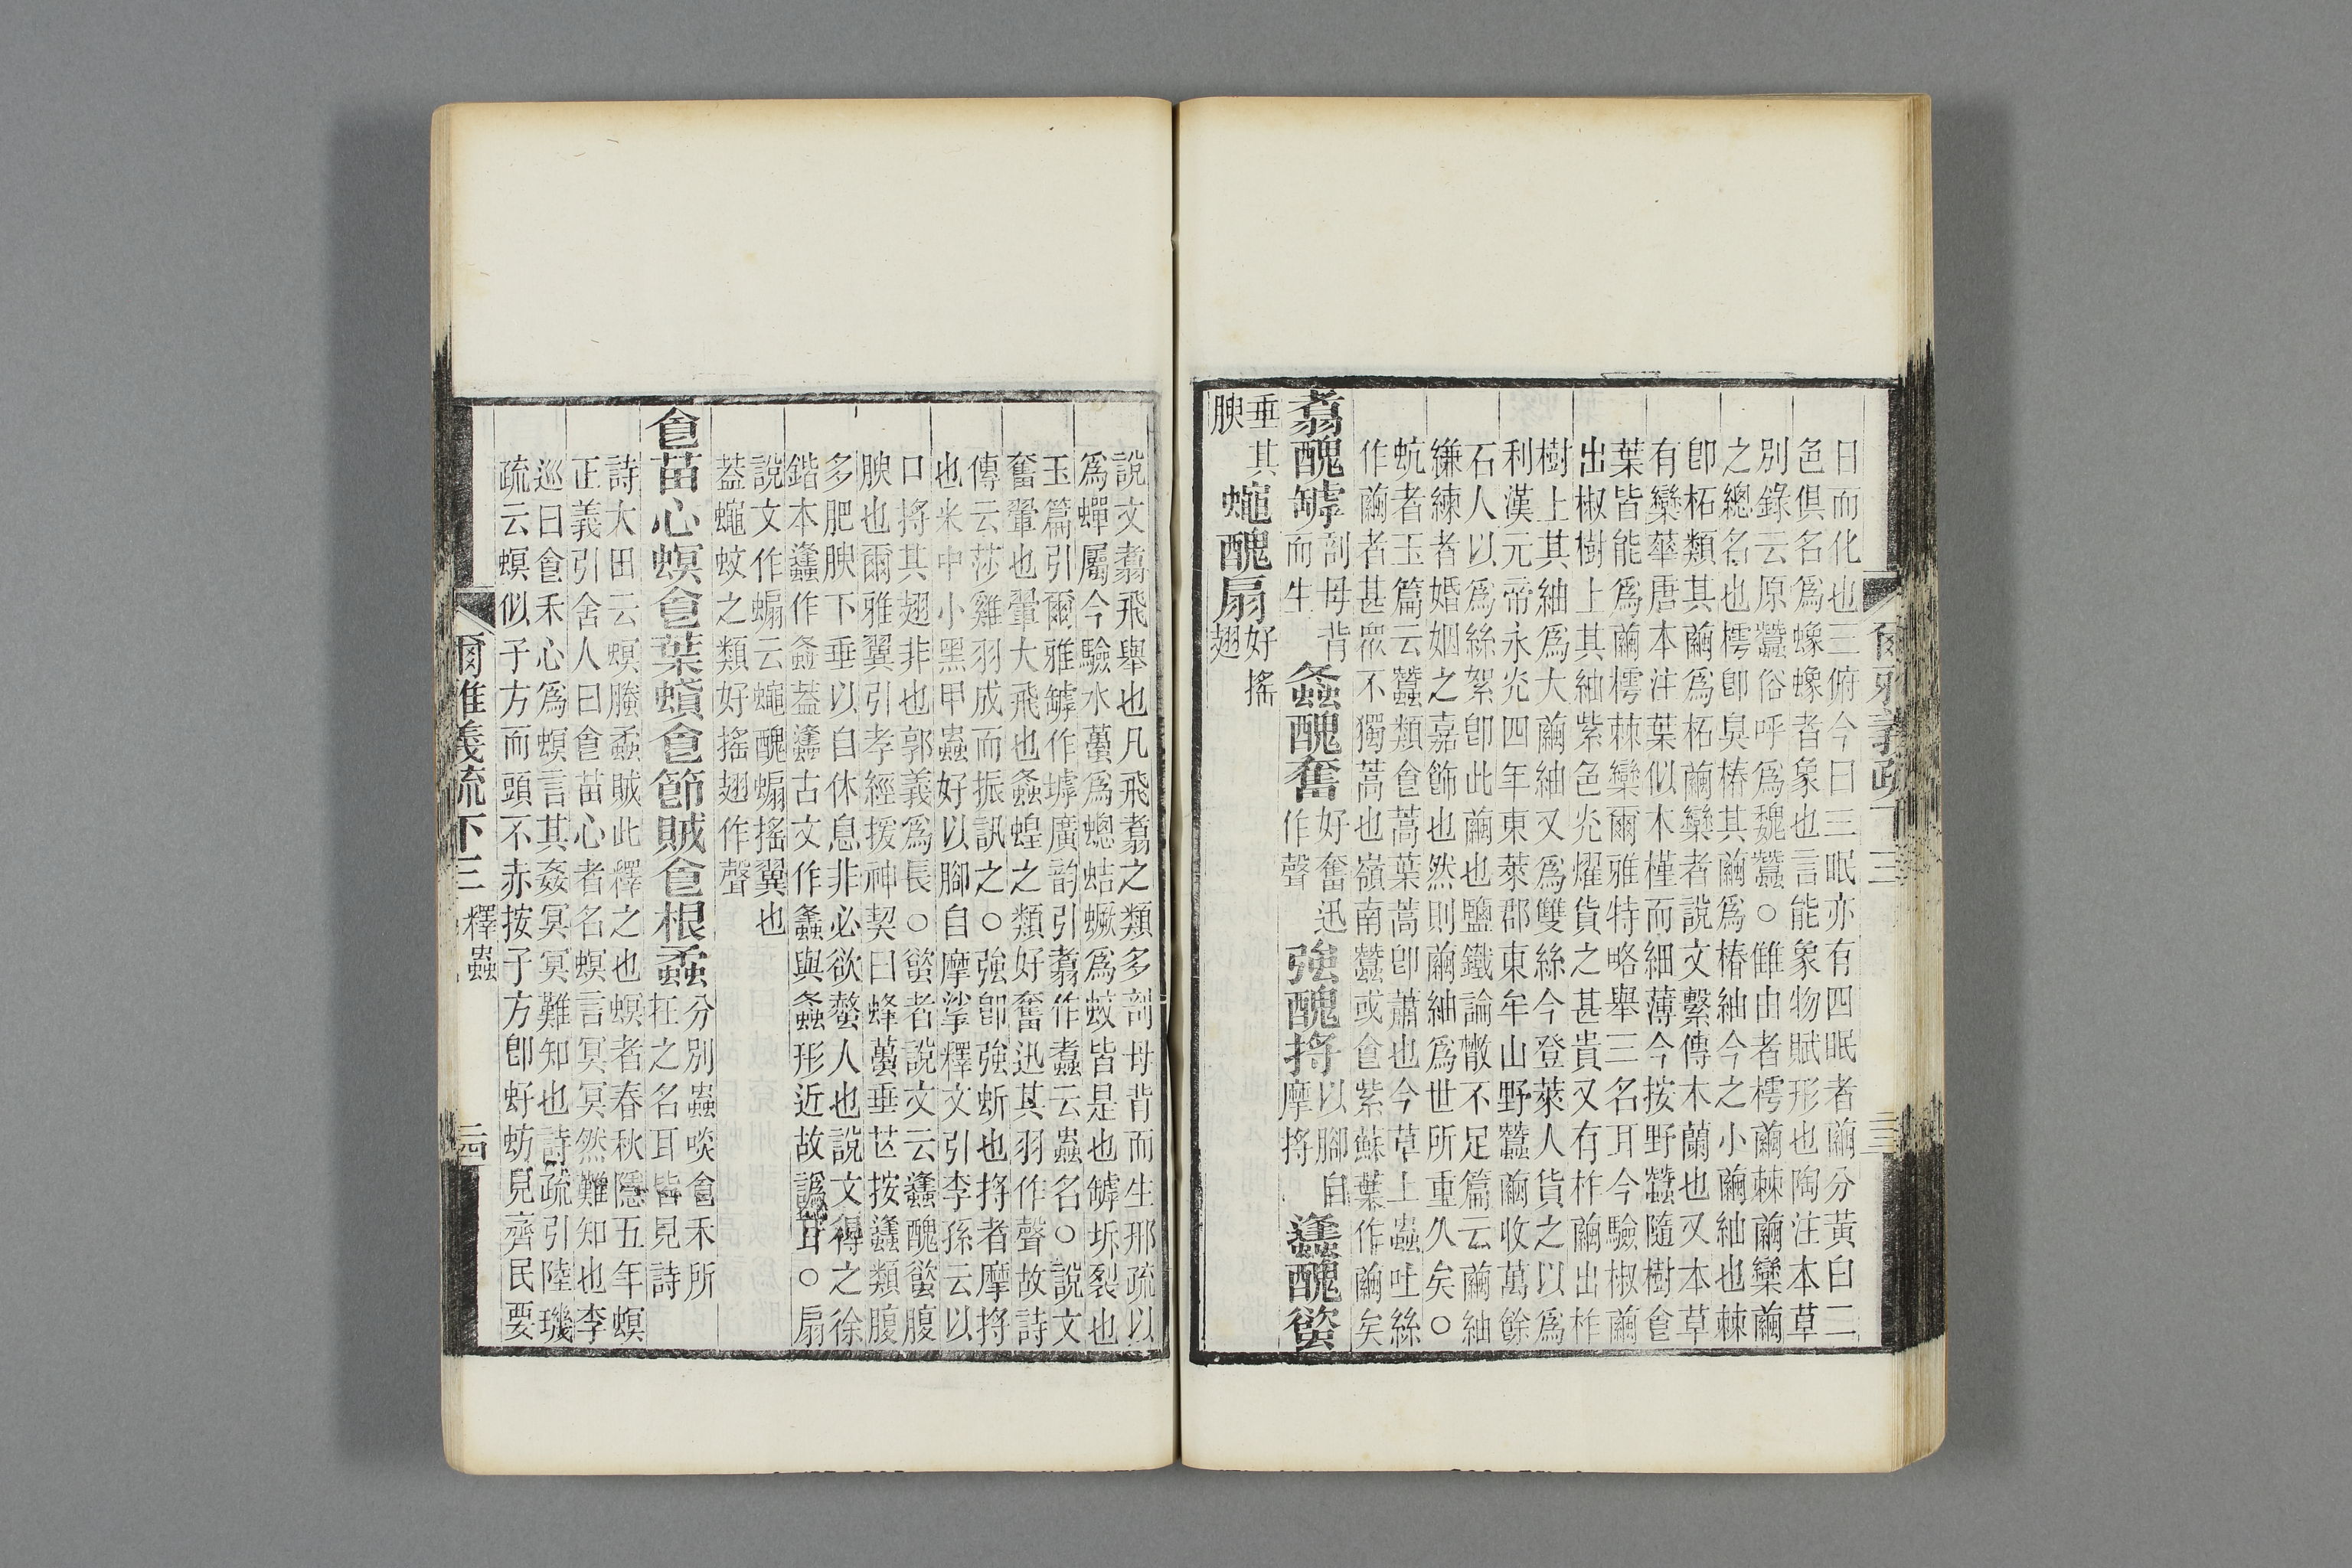 日而化也三俯今曰三眠亦有四眠者繭分黃白二
色俱名爲蟓蟓者象也言能象物賦形也陶注本草
別錄云原蠶俗呼爲魏蠶○雔由者樗繭棘繭欒繭
之總名也樗卽臭椿其繭爲椿紬今之小繭紬也棘
卽柘類其繭爲柘繭欒者說文繫傳木蘭也又本草
有欒華唐本注葉似木槿而細薄今按野蠶隨樹㑹
葉皆能爲繭樗棘欒爾雅特略舉三名耳今驗椒繭
出椒樹上其紬紫色光燿貨之甚貴又有柞繭出柞
樹上其紬爲大繭紬又爲雙絲今登萊人貨之以爲
利漢元帝永光四年東萊郡東牟山野蠶繭收萬餘
石人以爲絲絮卽此繭也鹽鐵論散不足篇云繭紬
縑練者婚姻之嘉飾也然則繭紬爲世所重久矣○
蚢者玉篇云蠶類食蒿葉蒿卽蕭也今草上蟲吐絲
作繭者甚眾不獨蒿也嶺南蠶或食紫蘇葉作繭矣
翥醜罅剖母背而生 螽醜奮好奮迅作聲 強醜捋以腳自摩捋 蠭醜螸
垂其腴 蠅醜扇好搖翅
爾雅義疏 下三 三
說文翥飛舉也凡飛翥之類多剖母背而生邢疏以
爲蟬屬今驗水蠆爲蟌蛣蟩爲蚊皆是也罅坼裂也
玉篇引爾雅罅作㙤廣韵引翥作䬡云蟲名○說文
奮翬也翬大飛也螽蝗之類好奮迅其羽作聲故詩
傳云莎雞羽成而振訊之○強卽強蚚也捋者摩捋
也米中小黑甲蟲好以腳自摩挲釋文引李孫云以
口捋其翅非也郭義爲長○螸者說文云蠭醜螸腹
腴也爾雅翼引孝經援神契曰蜂蠆垂芒按蠭類腹
多肥腴下垂以自休息非必欲螫人也說文得之徐
鍇本蠭作螽蓋蠭古文作螽與螽形近故譌耳○扇
說文作蝙云蠅醜蝙搖翼也
蓋蠅蚊之類好搖翅作聲
食苗心螟食葉蟘食節賊食根蟊分別蟲啖食禾所在之名耳皆見詩
詩大田云螟螣蟊賊此釋之也螟者春秋隱五年螟
正義引舍人曰食苗心者名螟言冥冥然難知也李
巡曰食禾心爲螟言其姦冥冥難知也詩疏引陸璣
疏云螟似子方而頭不赤按子方卽虸蚄見齊民要
爾雅義疏 下三 釋蟲